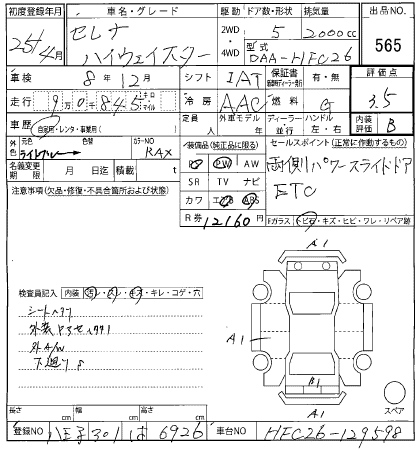 初度登録年月 車名・グレード 駆動 ドア数・形状 排気量 出品NO.
25年4月 セレナ ハイウェイスター 2WD 4WD 5 2000cc 565
型式 DAA-HFC26
車検 8年12月 シフト IAT 保証書 有・無 評価点
走行 9万0千845 キロ マイル 冷房 AAC 燃料 G 3.5
車歴 自家用・レンタ・事業用( ) 定員 外車モデル年 ディーラー 並行 ハンドル 左・右 内装 B
外色 元色 色替 カラーNO RAX
ライトグレー
名義変更期限 月 日迄 積載 t
装備品(純正品に限る) セールスポイント(正常に作動するもの)
PS PW AW 両側パワースライドドア
SR TV ナビ ETC
カワ エアB ABS
R券 12160円 Fガラス トビ石・キズ・ヒビ・ワレ・リペア跡
注意事項(欠品・修復・不具合箇所および状態)
A1
検査員記入 内装 汚レ・スレ・キズ・キレ・コゲ・穴
シート
外装
外A/W
下廻りS
A1
B1
A1
スペア
長さ cm 幅 cm 高さ cm
登録NO 八王子301 は 6926 車台NO HFC26-129598